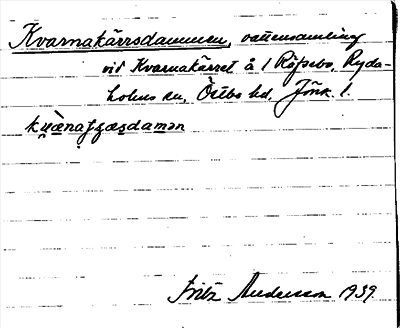 Kvarnakärrsdammen, vattensamling
vid Kvarnakärret å 1 Röfsebo, Ryda-
holms sn, Östbo hd, Jönk. l.
Fritz Andersson 1939.